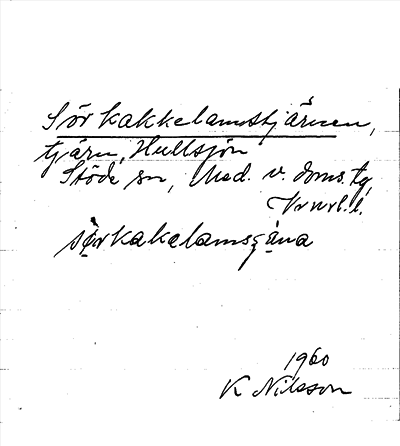 Sörkakkelamstjärnen,
tjärn, Hullsjön
Stöde sn, Med. v. doms. tg,
Vrnrl. l.
sörkakelamsȩ̄na
1960
K Nilsson